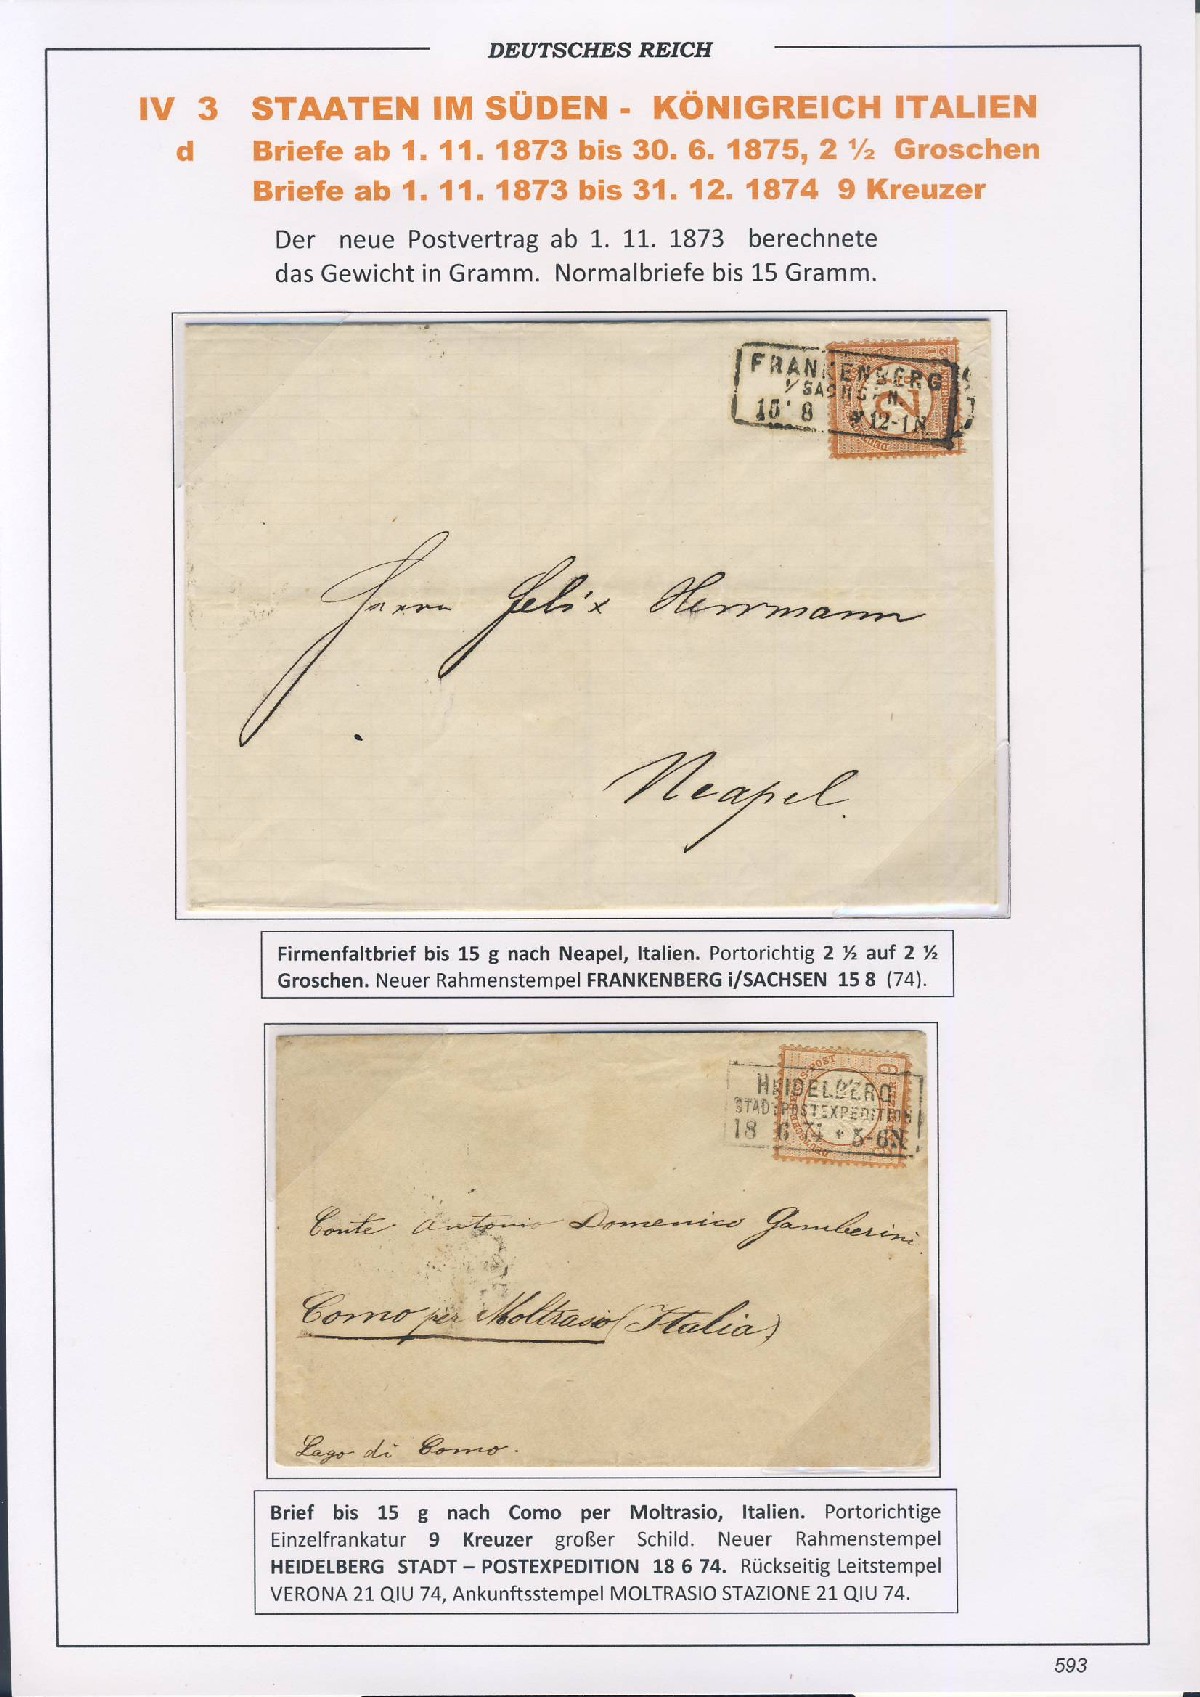 DEUTSCHES REICH
IV 3 STAATEN IM SÜDEN - KÖNIGREICH ITALIEN
d Briefe ab 1. 11. 1873 bis 30. 6. 1875, 2 ½ Groschen
Briefe ab 1. 11. 1873 bis 31. 12. 1874 9 Kreuzer
Der neue Postvertrag ab 1. 11. 1873 berechnete
das Gewicht in Gramm. Normalbriefe bis 15 Gramm.
FRANKENBERG
I/SACHSEN
15 8 * 12-1N
Herrn Felix Herrmann
Neapel.
Firmenfaltbrief bis 15 g nach Neapel, Italien. Portorichtig 2 ½ auf 2 ½
Groschen. Neuer Rahmenstempel FRANKENBERG i/SACHSEN 15 8 (74).
HEIDELBERG
STADTPOSTEXPEDITION
18 6 74 * 5-6N
Conte Antonio Domenico Gamberini
Como per Moltrasio (Italia)
Lago di Como.
Brief bis 15 g nach Como per Moltrasio, Italien. Portorichtige
Einzelfrankatur 9 Kreuzer großer Schild. Neuer Rahmenstempel
HEIDELBERG STADT – POSTEXPEDITION 18 6 74. Rückseitig Leitstempel
VERONA 21 QIU 74, Ankunftsstempel MOLTRASIO STAZIONE 21 QIU 74.
593